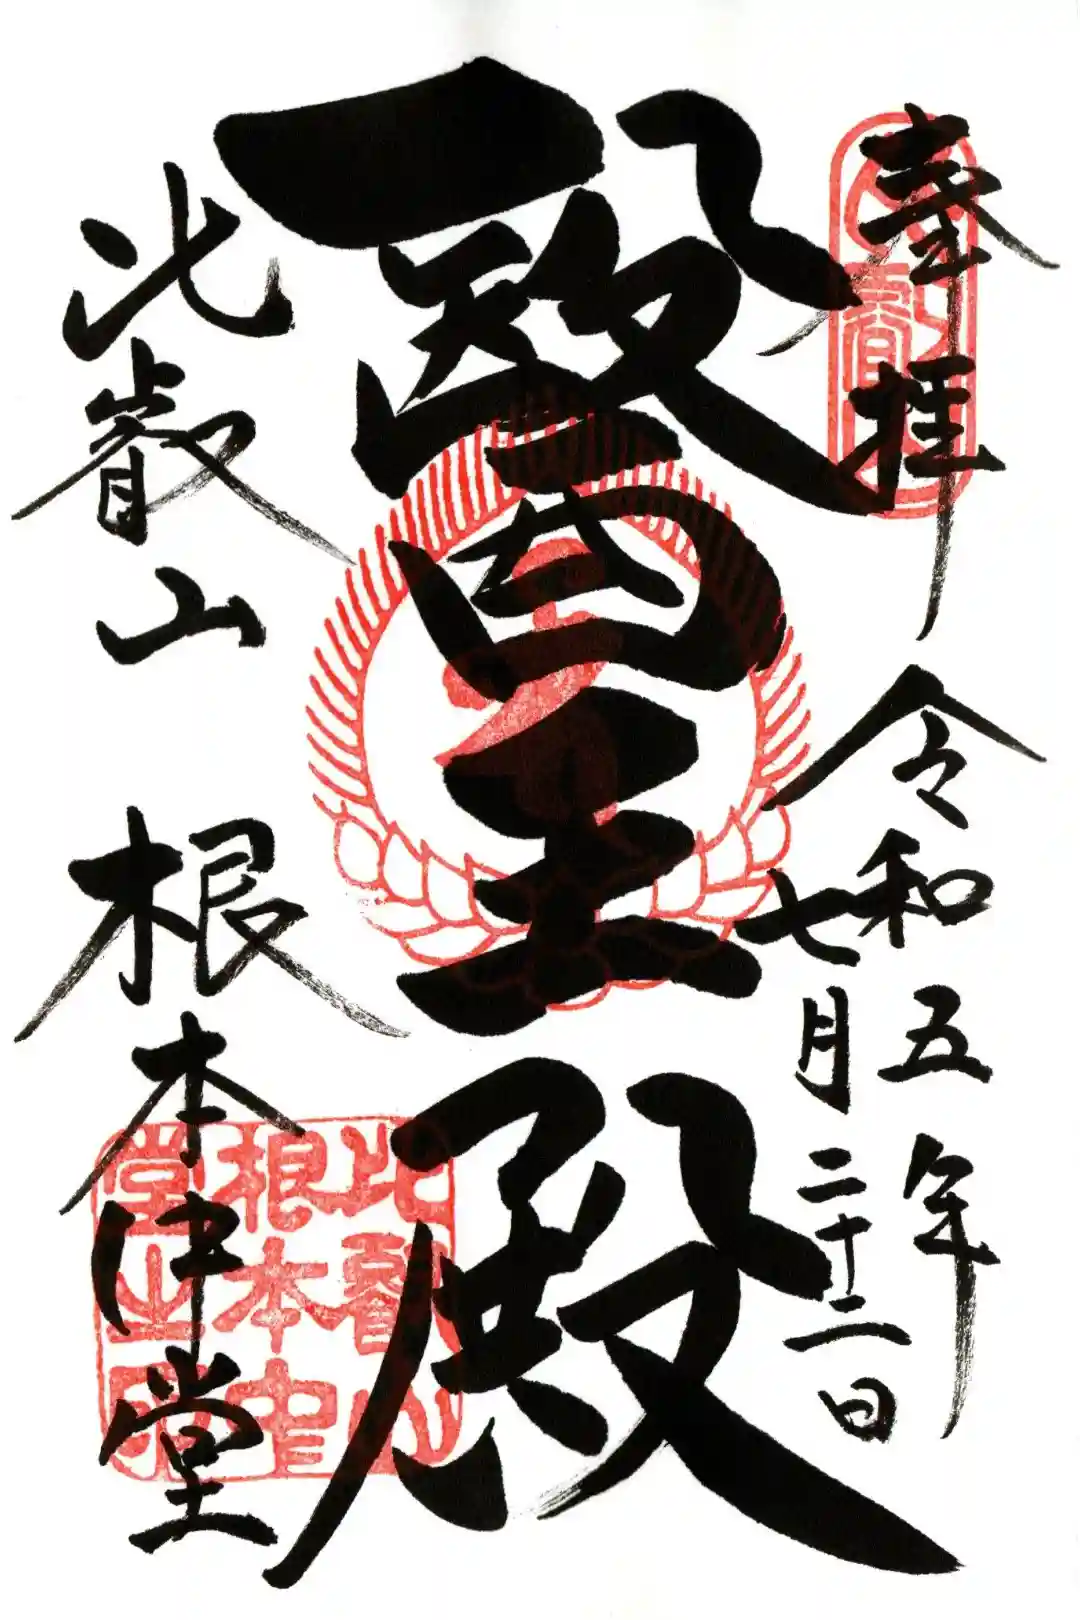 奉拝
令和五年
七月二十二日
醫王殿
比叡山
根本中堂
比叡山
根本中
堂之印